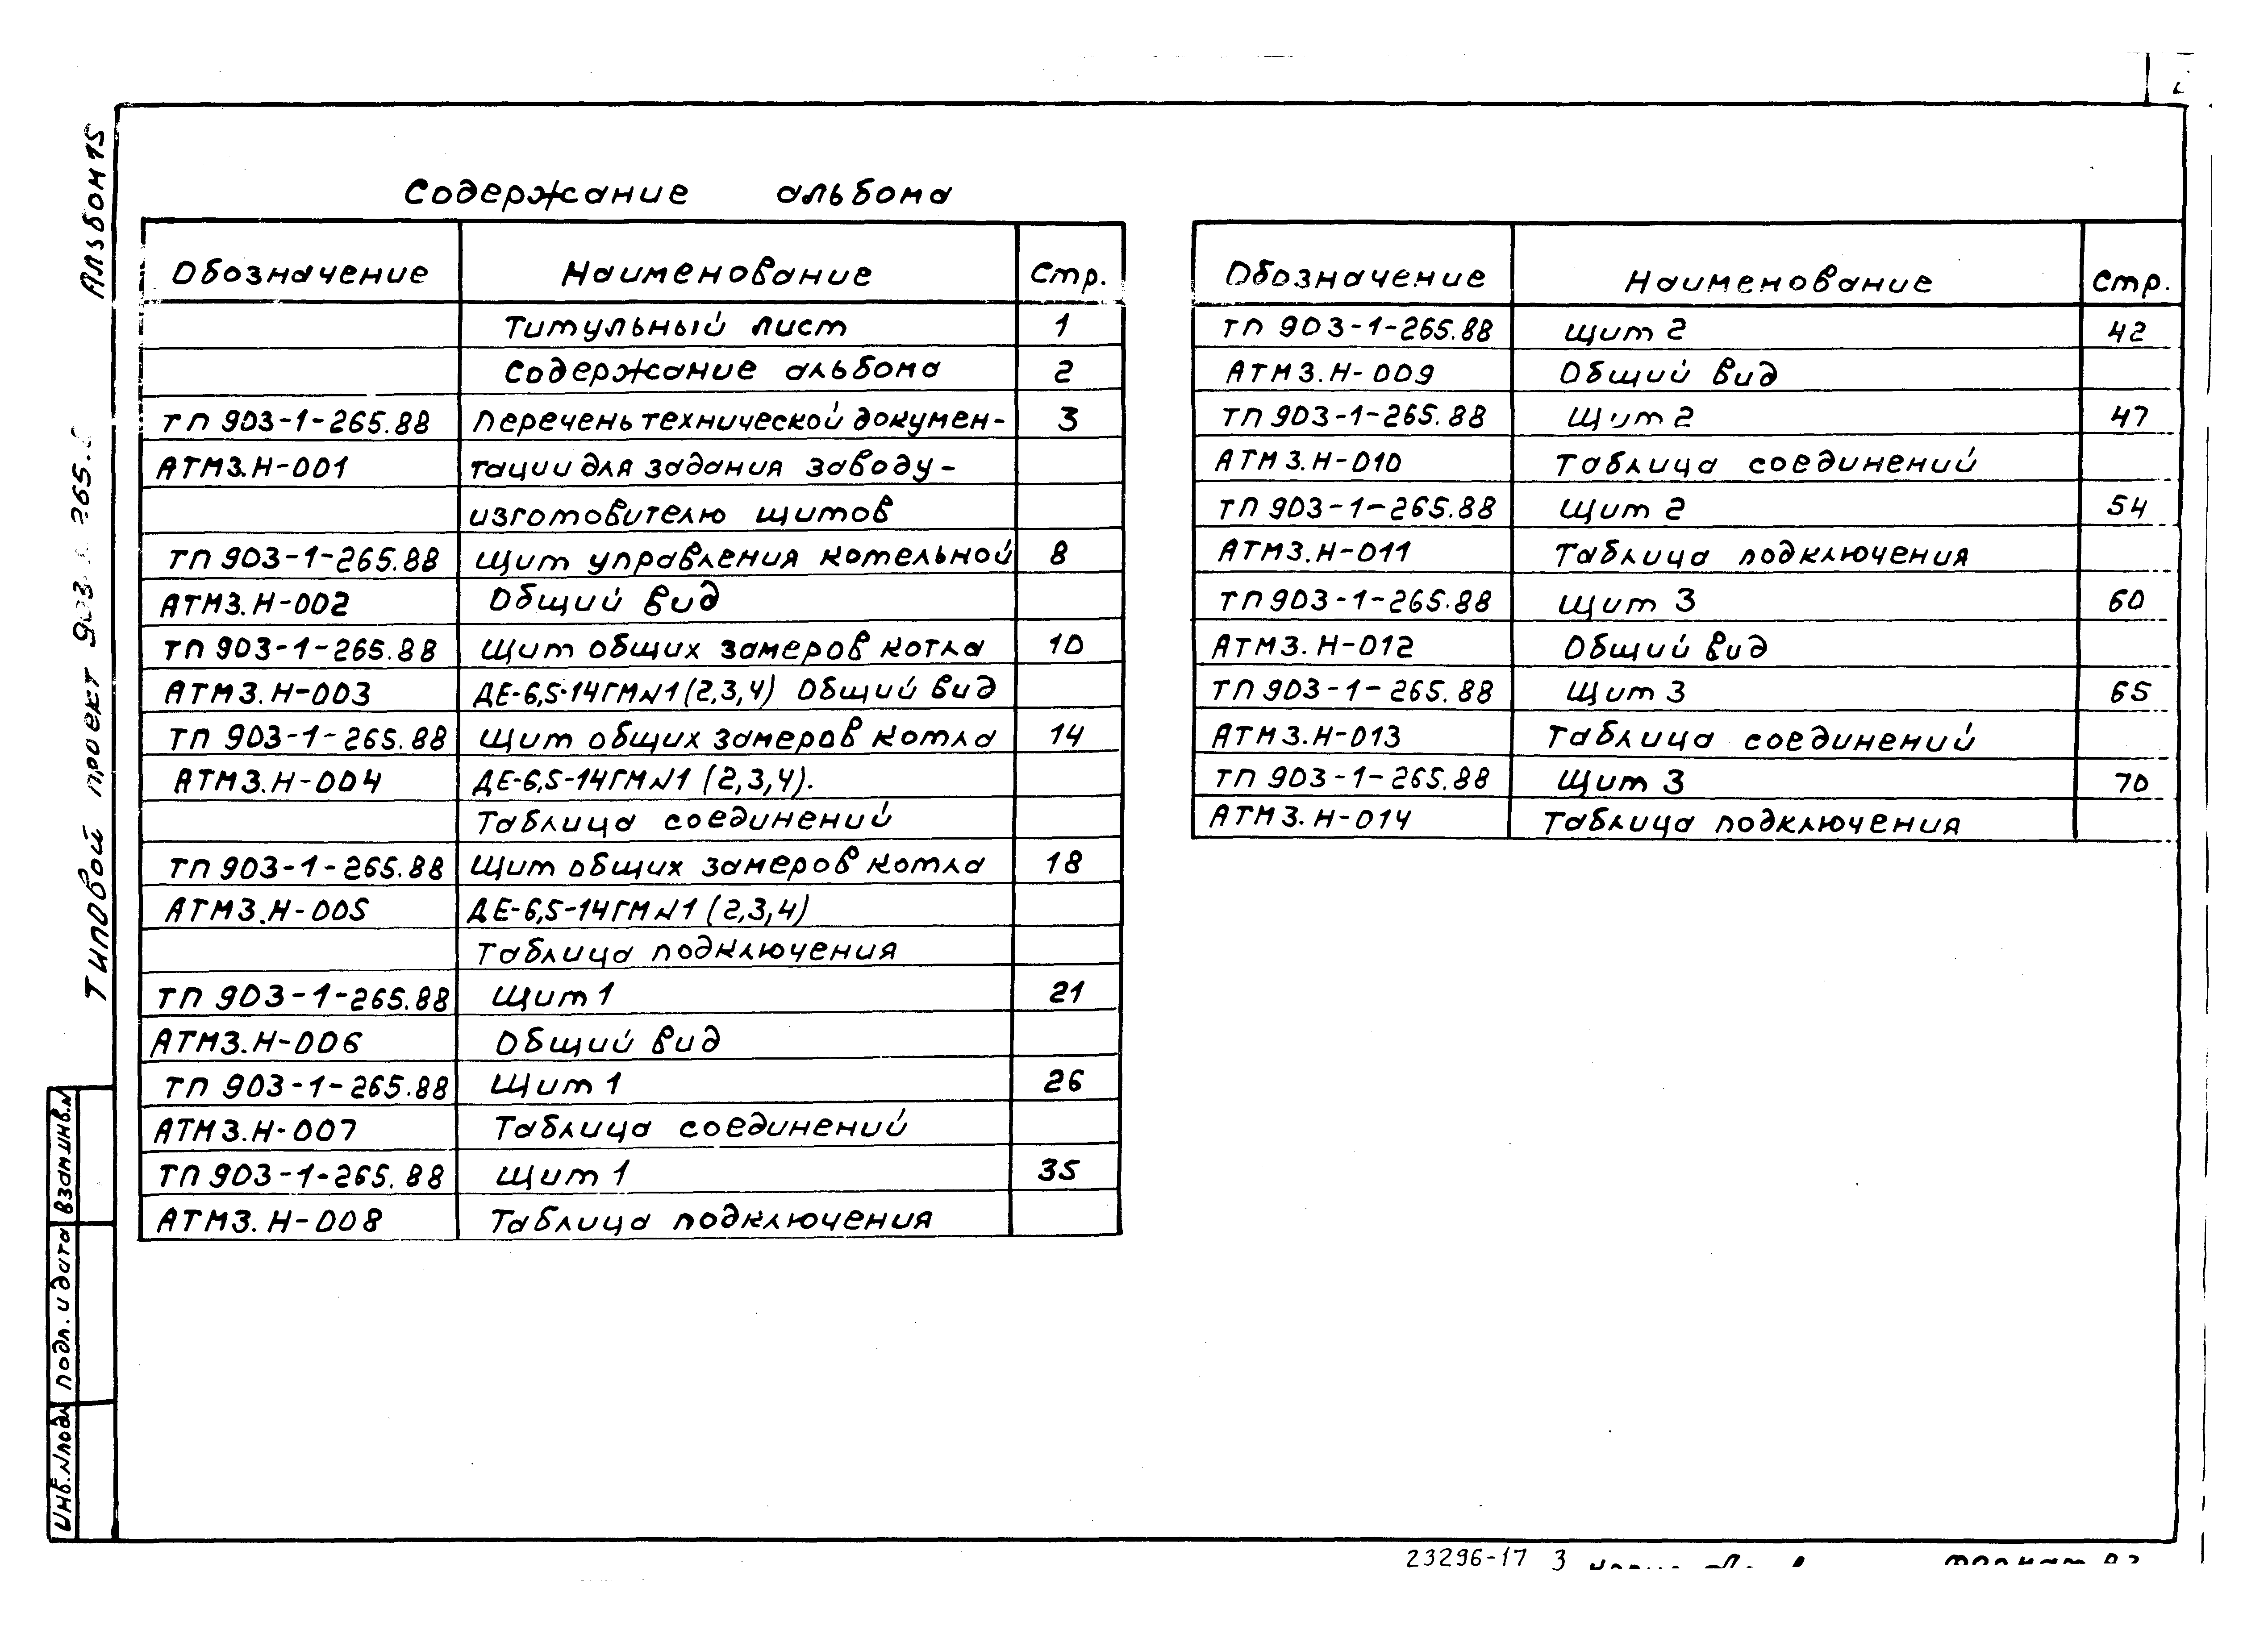 Альбом 15
Типовой проект 903
Содержание альбома
Обозначение Наименование Стр.
Титульный лист 1
Содержание альбома 2
ТП 903-1-265.88 Перечень технической докумен- 3
АТМ3.Н-001 тации для задания заводу-
изготовителю щитов
ТП 903-1-265.88 Щит управления котельной 8
АТМ3.Н-002 Общий вид
ТП 903-1-265.88 Щит общих замеров котла 10
АТМ3.Н-003 ДЕ-6,5-14ГМ N1 (2,3,4) Общий вид
ТП 903-1-265.88 Щит общих замеров котла 14
АТМ3.Н-004 ДЕ-6,5-14ГМ N1 (2,3,4).
Таблица соединений
ТП 903-1-265.88 Щит общих замеров котла 18
АТМ3.Н-005 ДЕ-6,5-14ГМ N1 (2,3,4)
Таблица подключения
ТП 903-1-265.88 Щит 1 21
АТМ3.Н-006 Общий вид
ТП 903-1-265.88 Щит 1 26
АТМ3.Н-007 Таблица соединений
ТП 903-1-265.88 Щит 1 35
АТМ3.Н-008 Таблица подключения
Обозначение Наименование Стр.
ТП 903-1-265.88 Щит 2 42
АТМ3.Н-009 Общий вид
ТП 903-1-265.88 Щит 2 47
АТМ3.Н-010 Таблица соединений
ТП 903-1-265.88 Щит 2 54
АТМ3.Н-011 Таблица подключения
ТП 903-1-265.88 Щит 3 60
АТМ3.Н-012 Общий вид
ТП 903-1-265.88 Щит 3 65
АТМ3.Н-013 Таблица соединений
ТП 903-1-265.88 Щит 3 70
АТМ3.Н-014 Таблица подключения
Взам.инв.N
Подп. и дата
Инв.N подл
23296-17 3